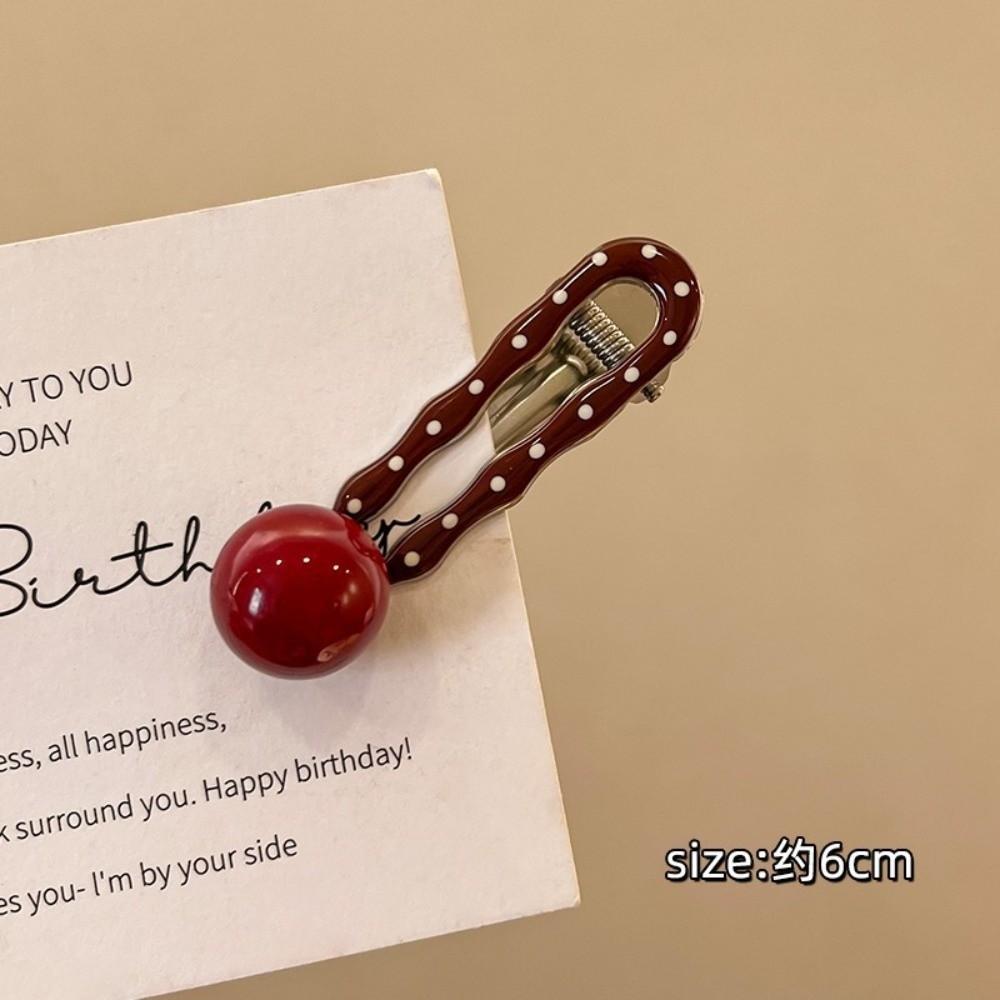 Y TO YOU
ODAY
Birth
ess, all happiness,
k surround you. Happy birthday!
es you- I'm by your side
size:约6cm